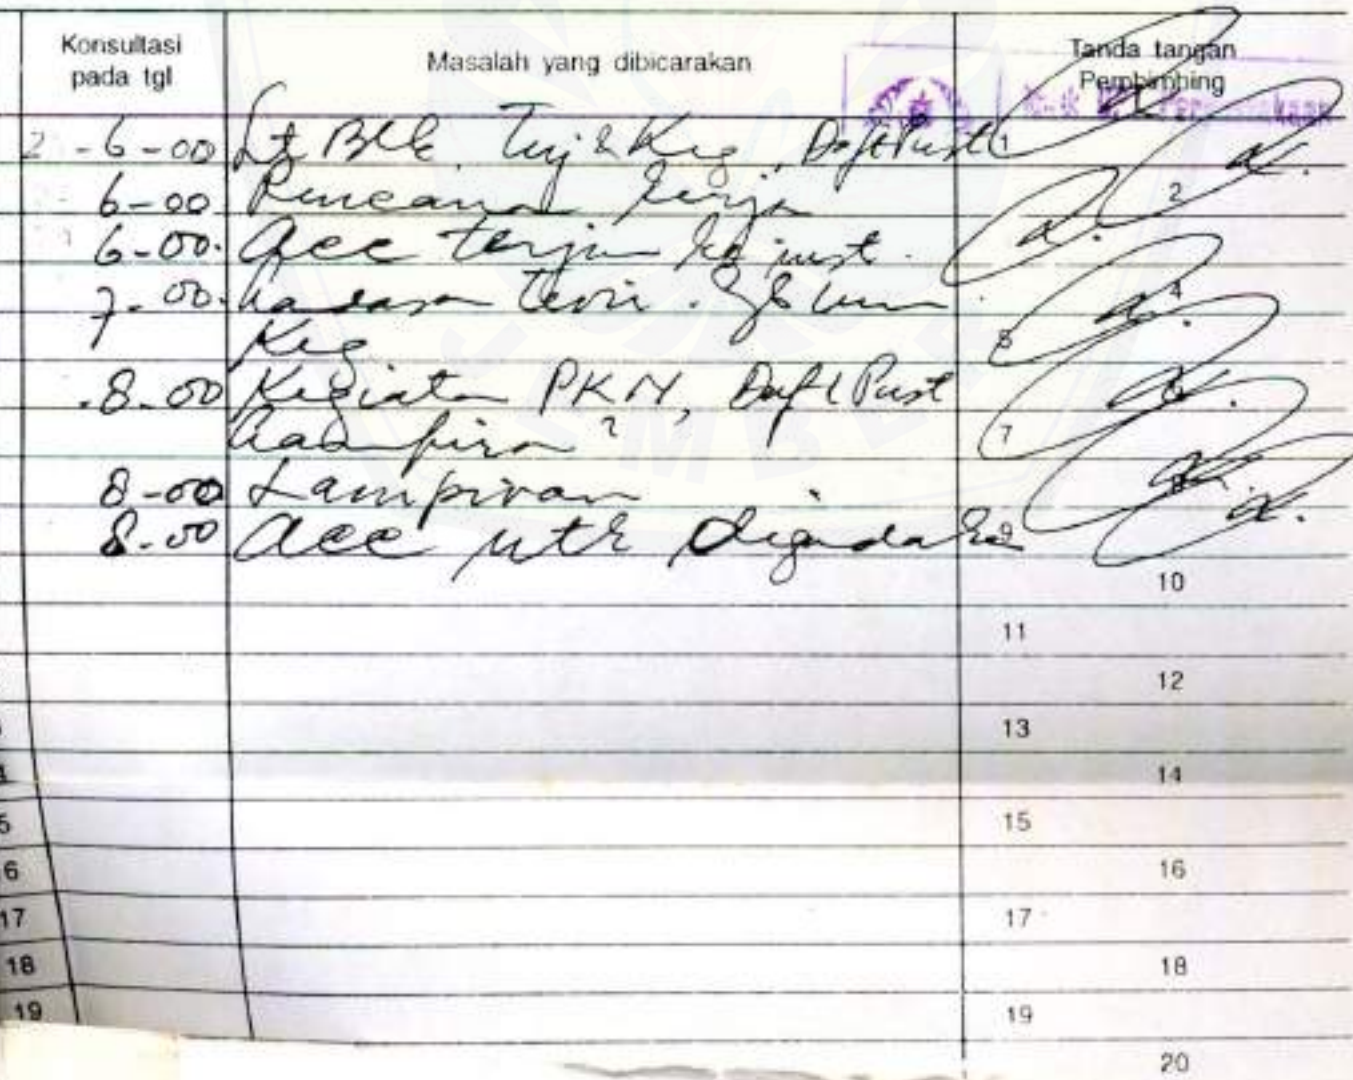 Konsultasi pada tgl Masalah yang dibicarakan Tanda tangan Pembimbing
2 -6-00 Lt Blk Tuj & Keg, Daft Pust 1
6-00 Rencana kerja 2
6-00. acc terjun ke inst.
7-00. Landasan teori. 4
Keg 5
.8-00 Kegiatan PKN, Daft Pust 6
Lampiran ? 7
8-00 Lampiran
8-00 acc utk digandake
10
11
12
13
14
5 15
6 16
17 17
18 18
19 19
20